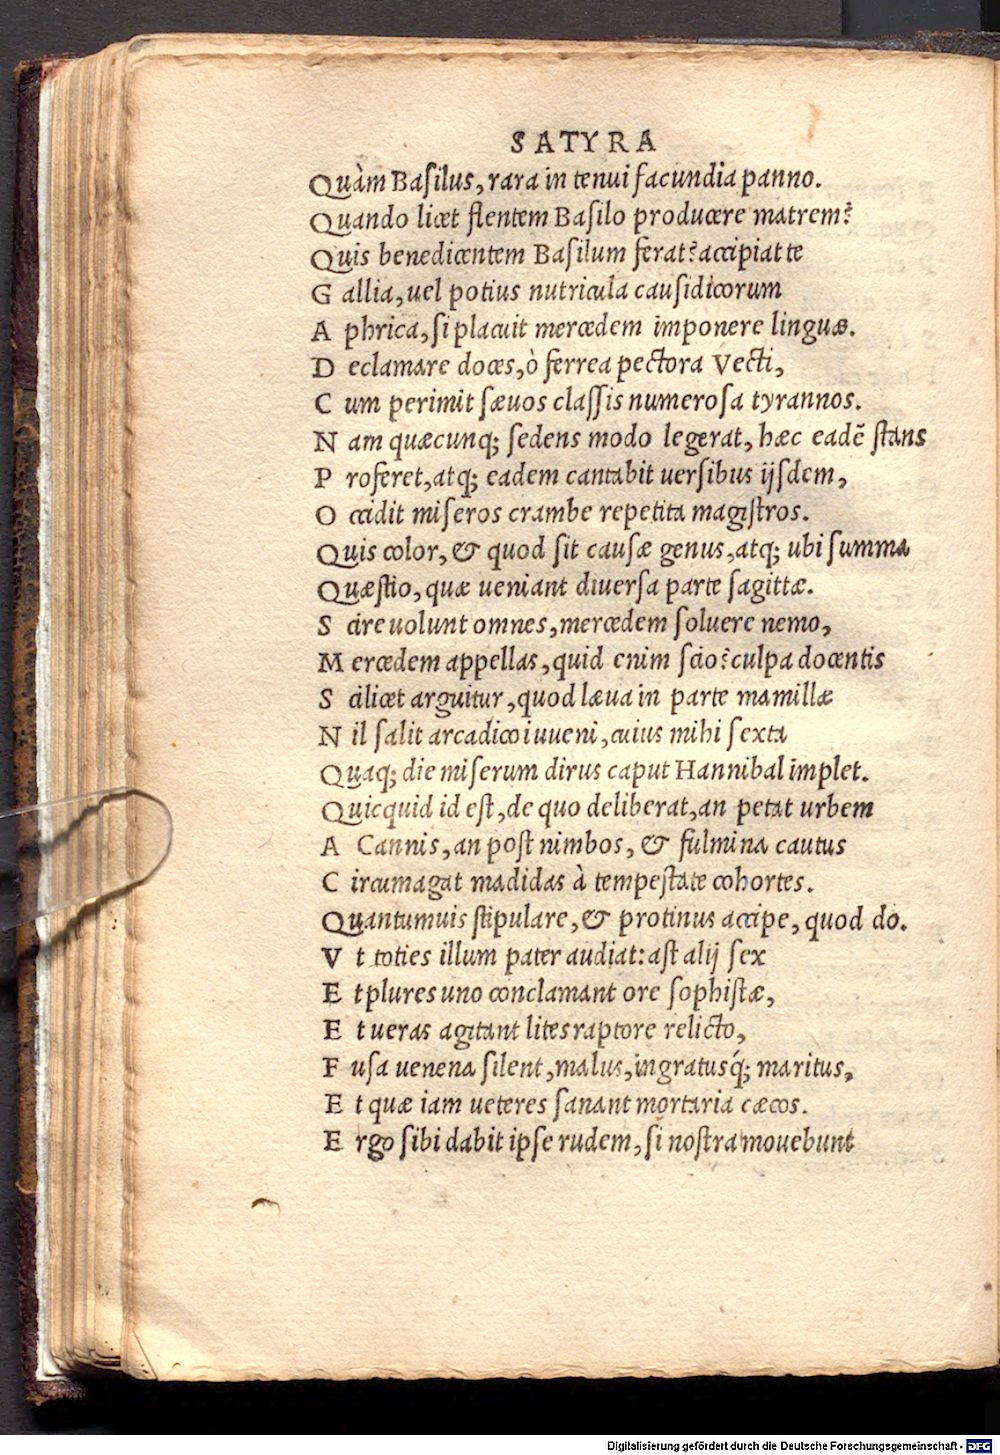 SATYRA
Quàm Basilus, rara in tenui facundia panno.
Quando licet flentem Basilo producere matrem?
Quis benedicentem Basilum ferat? accipiat te
G allia, uel potius nutricula causidicorum
A phrica, si placuit mercedem imponere linguæ.
D eclamare doces, ò ferrea pectora Vecti,
C um perimit sæuos classis numerosa tyrannos.
N am quæcunq; sedens modo legerat, hæc eadē stans
P roferet, atq; eadem cantabit uersibus ijsdem,
O ccidit miseros crambe repetita magistros.
Quis color, & quod sit causæ genus, atq; ubi summa
Quæstio, quæ ueniant diuersa parte sagittæ.
S cire uolunt omnes, mercedem soluere nemo,
M ercedem appellas, quid enim scio? culpa docentis
S cilicet arguitur, quod læua in parte mamillæ
N il salit arcadico iuueni, cuius mihi sexta
Quaq; die miserum dirus caput Hannibal implet.
Quicquid id est, de quo deliberat, an petat urbem
A Cannis, an post nimbos, & fulmina cautus
C ircumagat madidas à tempestate cohortes.
Quantumuis stipulare, & protinus accipe, quod do.
V t toties illum pater audiat: ast alij sex
E t plures uno conclamant ore sophistæ,
E t ueras agitant lites raptore relicto,
F usa uenena silent, malus, ingratusq́; maritus,
E t quæ iam ueteres sanant mortaria cæcos.
E rgo sibi dabit ipse rudem, si nostra mouebunt
Digitalisierung gefördert durch die Deutsche Forschungsgemeinschaft - DFG